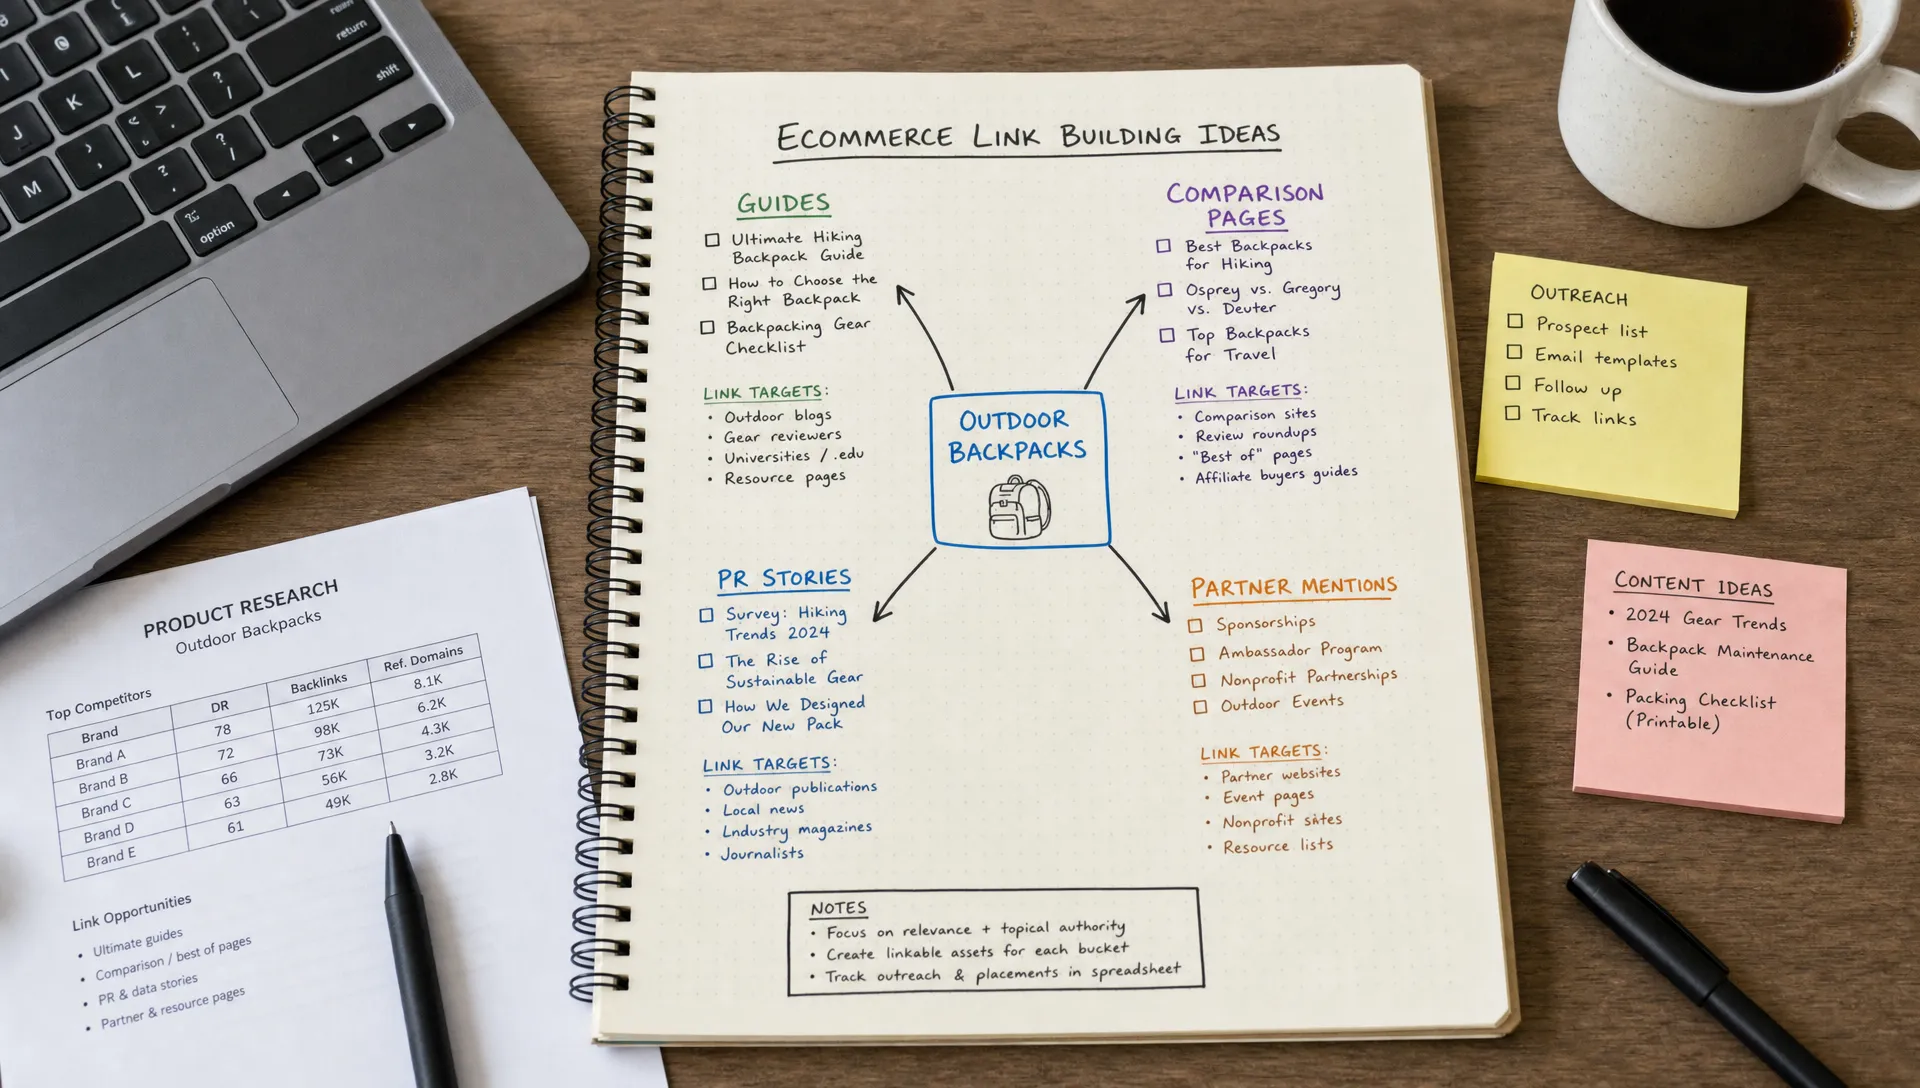 return
shift
option
L
K
J
M
ECOMMERCE LINK BUILDING IDEAS
GUIDES
Ultimate Hiking
Backpack Guide
How to Choose the
Right Backpack
Backpacking Gear
Checklist
LINK TARGETS:
• Outdoor blogs
• Gear reviewers
• Universities / .edu
• Resource pages
COMPARISON
PAGES
Best Backpacks
for Hiking
Osprey vs. Gregory
vs. Deuter
Top Backpacks
for Travel
LINK TARGETS:
• Comparison sites
• Review roundups
• "Best of" pages
• Affiliate buyers guides
OUTDOOR
BACKPACKS
PR STORIES
Survey: Hiking
Trends 2024
The Rise of
Sustainable Gear
How We Designed
Our New Pack
LINK TARGETS:
• Outdoor publications
• Local news
• Lndustry magazines
• Journalists
PARTNER MENTIONS
Sponsorships
Ambassador Program
Nonprofit Partnerships
Outdoor Events
LINK TARGETS:
• Partner websites
• Event pages
• Nonprofit sites
• Resource lists
NOTES
• Focus on relevance + topical authority
• Create linkable assets for each bucket
• Track outreach & placements in spreadsheet
OUTREACH
Prospect list
Email templates
Follow up
Track links
CONTENT IDEAS
• 2024 Gear Trends
• Backpack Maintenance
Guide
• Packing Checklist
(Printable)
PRODUCT RESEARCH
Outdoor Backpacks
Top Competitors
Brand DR Backlinks Ref. Domains
Brand A 78 125K 8.1K
Brand B 72 98K 6.2K
Brand C 66 73K 4.3K
Brand D 63 56K 3.2K
Brand E 61 49K 2.8K
Link Opportunities
• Ultimate guides
• Comparison / best of pages
• PR & data stories
• Partner & resource pages